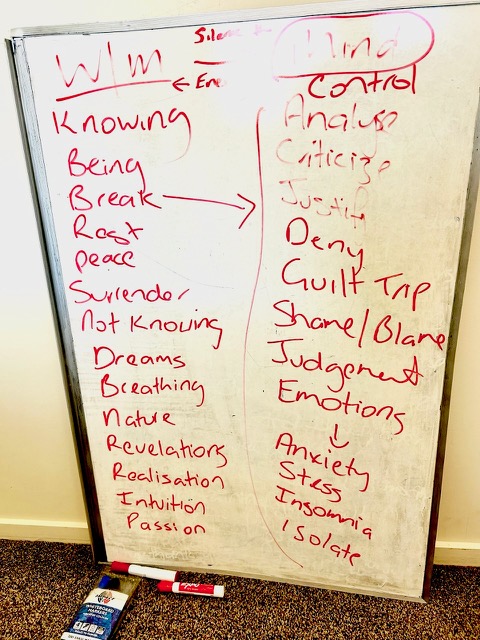 W/m
Knowing
Being
Break
Rest
peace
Surrender
Not Knowing
Dreams
Breathing
Nature
Revelations
Realisation
Intuition
Passion
Mind
Control
Analyse
Criticize
Justify
Deny
Guilt Trip
Shame/Blame
Judgement
Emotions
↓
Anxiety
Stess
Insomnia
Isolate
WHITEBOARD
MARKERS